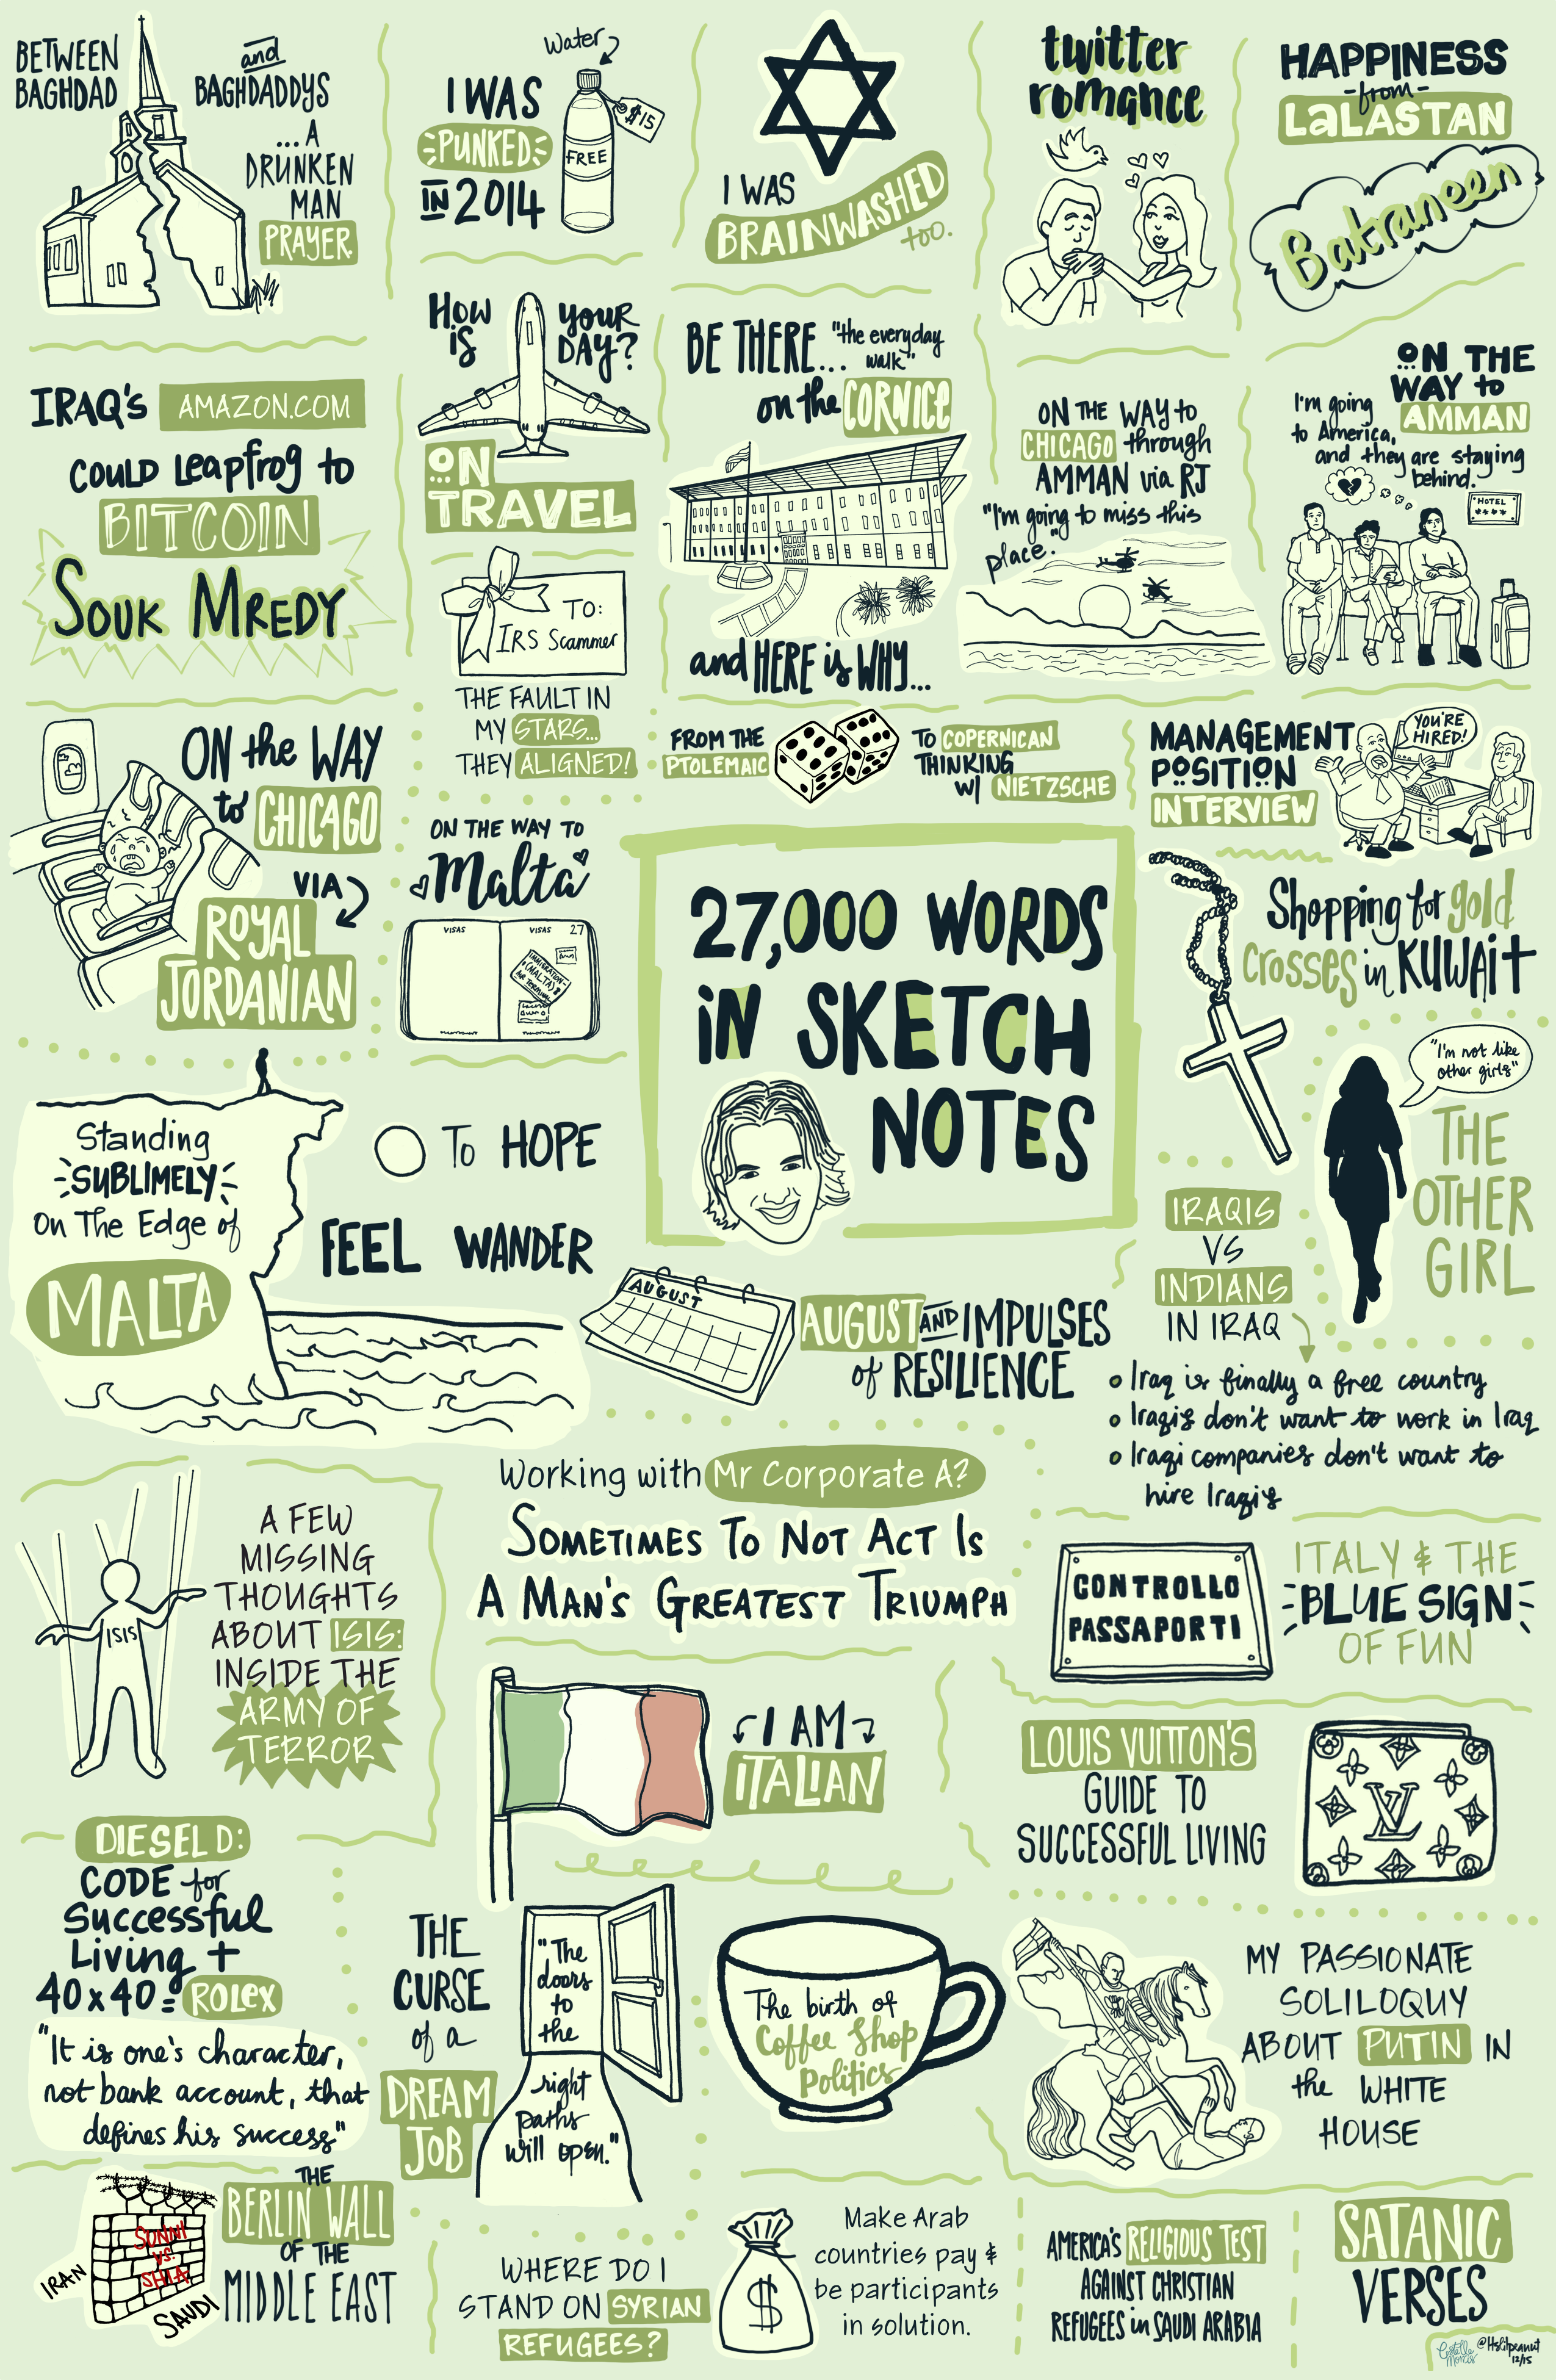 BETWEEN
BAGHDAD
and
BAGHDADDYS
...A
DRUNKEN
MAN
PRAYER.
Water
I WAS
PUNKED
IN 2014
FREE
$15
I WAS
BRAINWASHED
too.
twitter
romance
HAPPINESS
-from-
LaLASTAN
Batraneen
IRAQ's AMAZON.COM
COULD Leapfrog to
BITCOIN
SOUK MREDY
HOW
IS
YOUR
DAY?
ON
TRAVEL
TO:
IRS Scammer
THE FAULT IN
MY STARS...
THEY ALIGNED!
BE THERE... "the everyday
walk"
on the CORNICE
and HERE is WHY...
ON THE WAY to
CHICAGO through
AMMAN via RJ
"I'm going to miss this
place."
ON THE
WAY to
AMMAN
I'm going
to America,
and they are staying
behind.
HOTEL
****
ON the WAY
to CHICAGO
VIA
ROYAL
JORDANIAN
ON THE WAY TO
Malta
VISAS
VISAS 27
IMMIGRATION
(MALTA)
AIR TERMINAL
FROM THE
PTOLEMAIC
TO COPERNICAN
THINKING
W/ NIETZSCHE
MANAGEMENT
POSITION
INTERVIEW
YOU'RE
HIRED!
27,000 WORDS
IN SKETCH
NOTES
Shopping for gold
Crosses in KUWAIT
"I'm not like
other girls"
THE
OTHER
GIRL
Standing
SUBLIMELY
On The Edge of
MALTA
TO HOPE
FEEL WANDER
AUGUST
AUGUST AND IMPULSES
of RESILIENCE
IRAQIS
VS
INDIANS
IN IRAQ
Iraq is finally a free country
Iraqis don't want to work in Iraq
Iraqi companies don't want to
hire Iraqis
ISIS
A FEW
MISSING
THOUGHTS
ABOUT ISIS:
INSIDE THE
ARMY OF
TERROR
Working with Mr Corporate A?
SOMETIMES TO NOT ACT IS
A MAN'S GREATEST TRIUMPH
CONTROLLO
PASSAPORTI
ITALY & THE
BLUE SIGN
OF FUN
I AM
ITALIAN
LOUIS VUITTON'S
GUIDE TO
SUCCESSFUL LIVING
LV
DIESEL D:
CODE for
Successful
Living +
40x40= ROLEX
"It is one's character,
not bank account, that
defines his success"
THE
CURSE
of a
DREAM
JOB
"The
doors
to
the
right
paths
will open."
The birth of
Coffee Shop
Politics
MY PASSIONATE
SOLILOQUY
ABOUT PUTIN IN
the WHITE
HOUSE
SUNNI
VS.
SHIA
IRAN
SAUDI
THE
BERLIN WALL
OF THE
MIDDLE EAST
WHERE DO I
STAND ON SYRIAN
REFUGEES?
$
Make Arab
countries pay &
be participants
in solution.
AMERICA'S RELIGIOUS TEST
AGAINST CHRISTIAN
REFUGEES in SAUDI ARABIA
SATANIC
VERSES
12/15